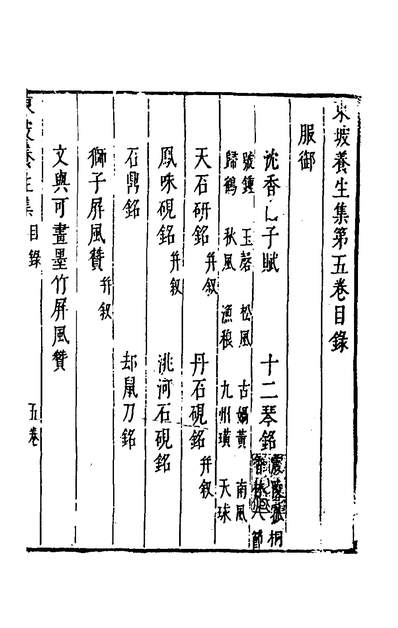 東坡養生集第五卷目錄
服御
沈香山子賦
十二琴銘
桐
節
號鍾 玉磬 松風 古媧黃 南風
歸鶴 秋風 漁榔 九州璜 天球
天石硏銘 并叙 丹石硯銘 并叙
鳳咮硯銘 并叙 洮河石硯銘
石鼎銘 却鼠刀銘
獅子屏風贊 并叙
文與可畫墨竹屏風贊
東坡養生集 目錄 五卷